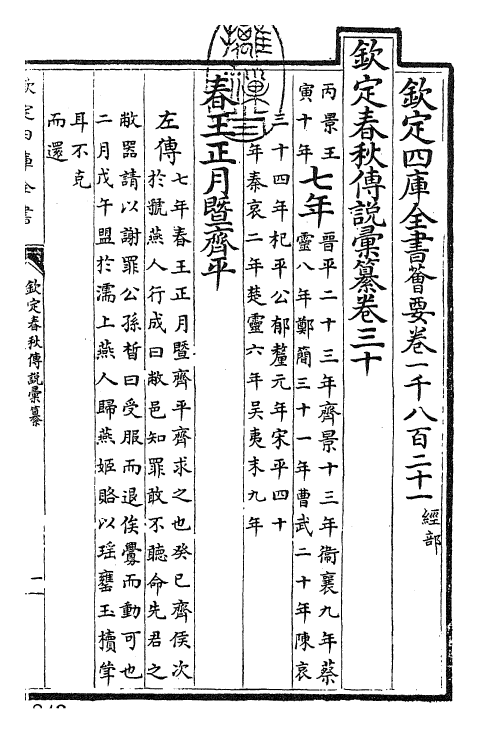 欽定四庫全書薈要卷一千八百二十一 經部
欽定春秋傳說彙纂卷三十
丙景王
寅十年
七年
晉平二十三年齊景十三年衞襄九年蔡
靈八年鄭簡三十一年曹武二十年陳哀
三十四年杞平公郁釐元年宋平四十
年秦哀二年楚靈六年吳夷末九年
春王正月暨齊平
左傳
七年春王正月暨齊平齊求之也癸巳齊侯次
於虢燕人行成曰敝邑知罪敢不聽命先君之
敝器請以謝罪公孫晳曰受服而退俟釁而動可也
二月戊午盟於濡上燕人歸燕姬賂以瑶罋玉櫝斝
耳不克
而還
欽定四庫全書
欽定春秋傳說彙纂